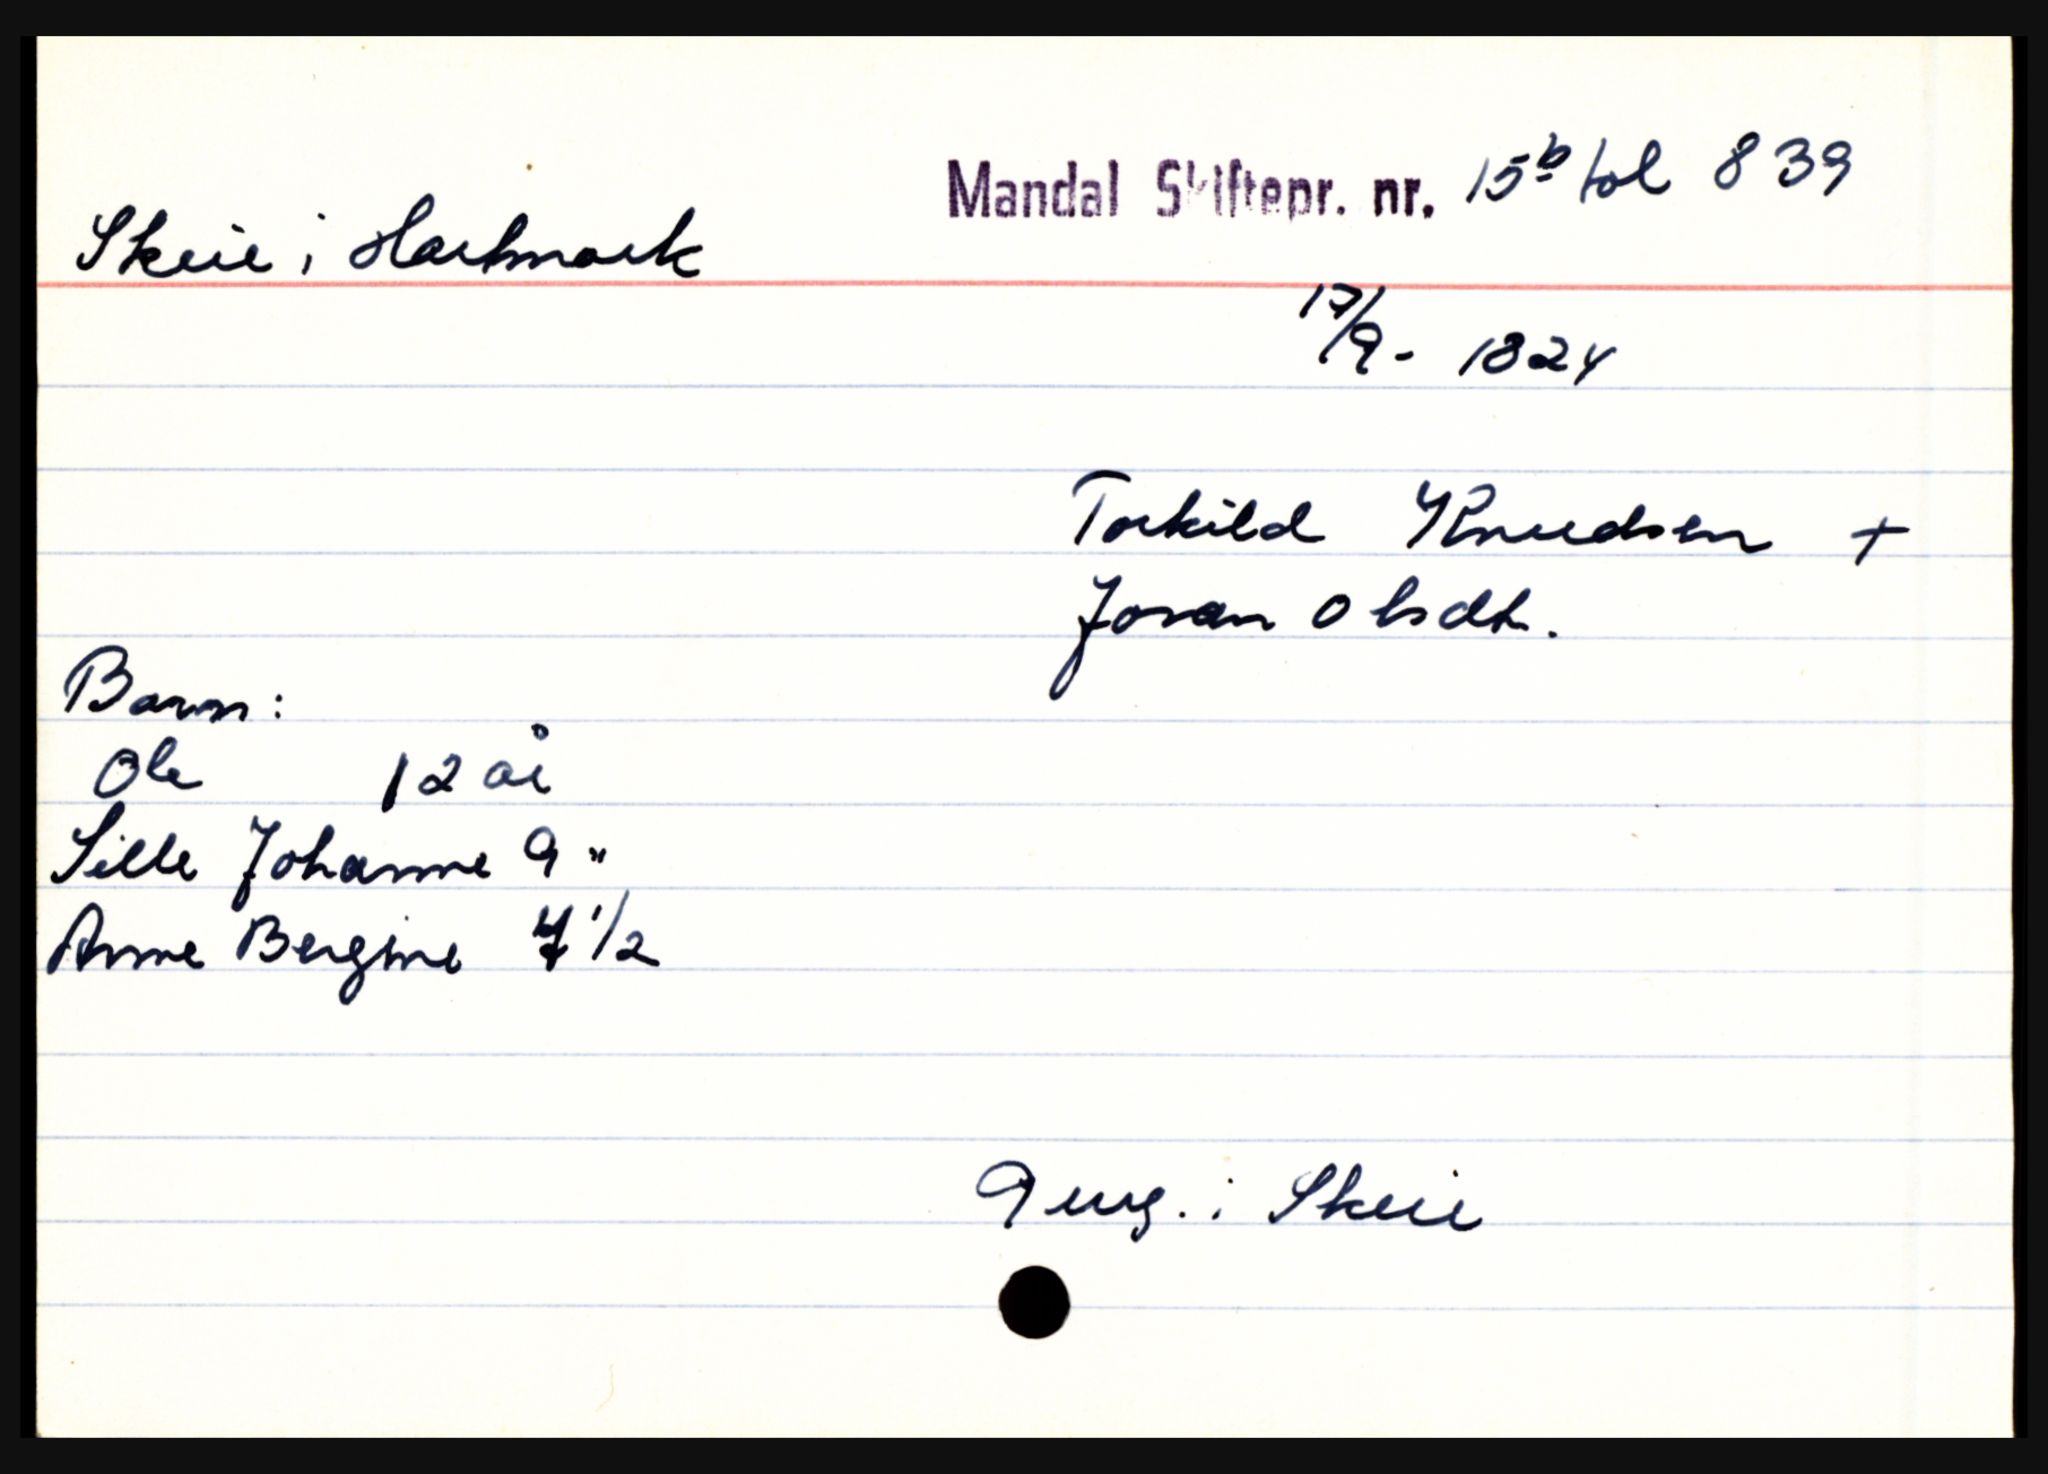 Mandal Skiftepr. nr. 15b fol 839
Skeie i Hartmark
17/9 - 1824
Torkild Knudsen +
Joran Olsdtr.
Barn:
Ole 12 år
Sille Johanne 9 "
Anne Bergine 1/2
i Skeie